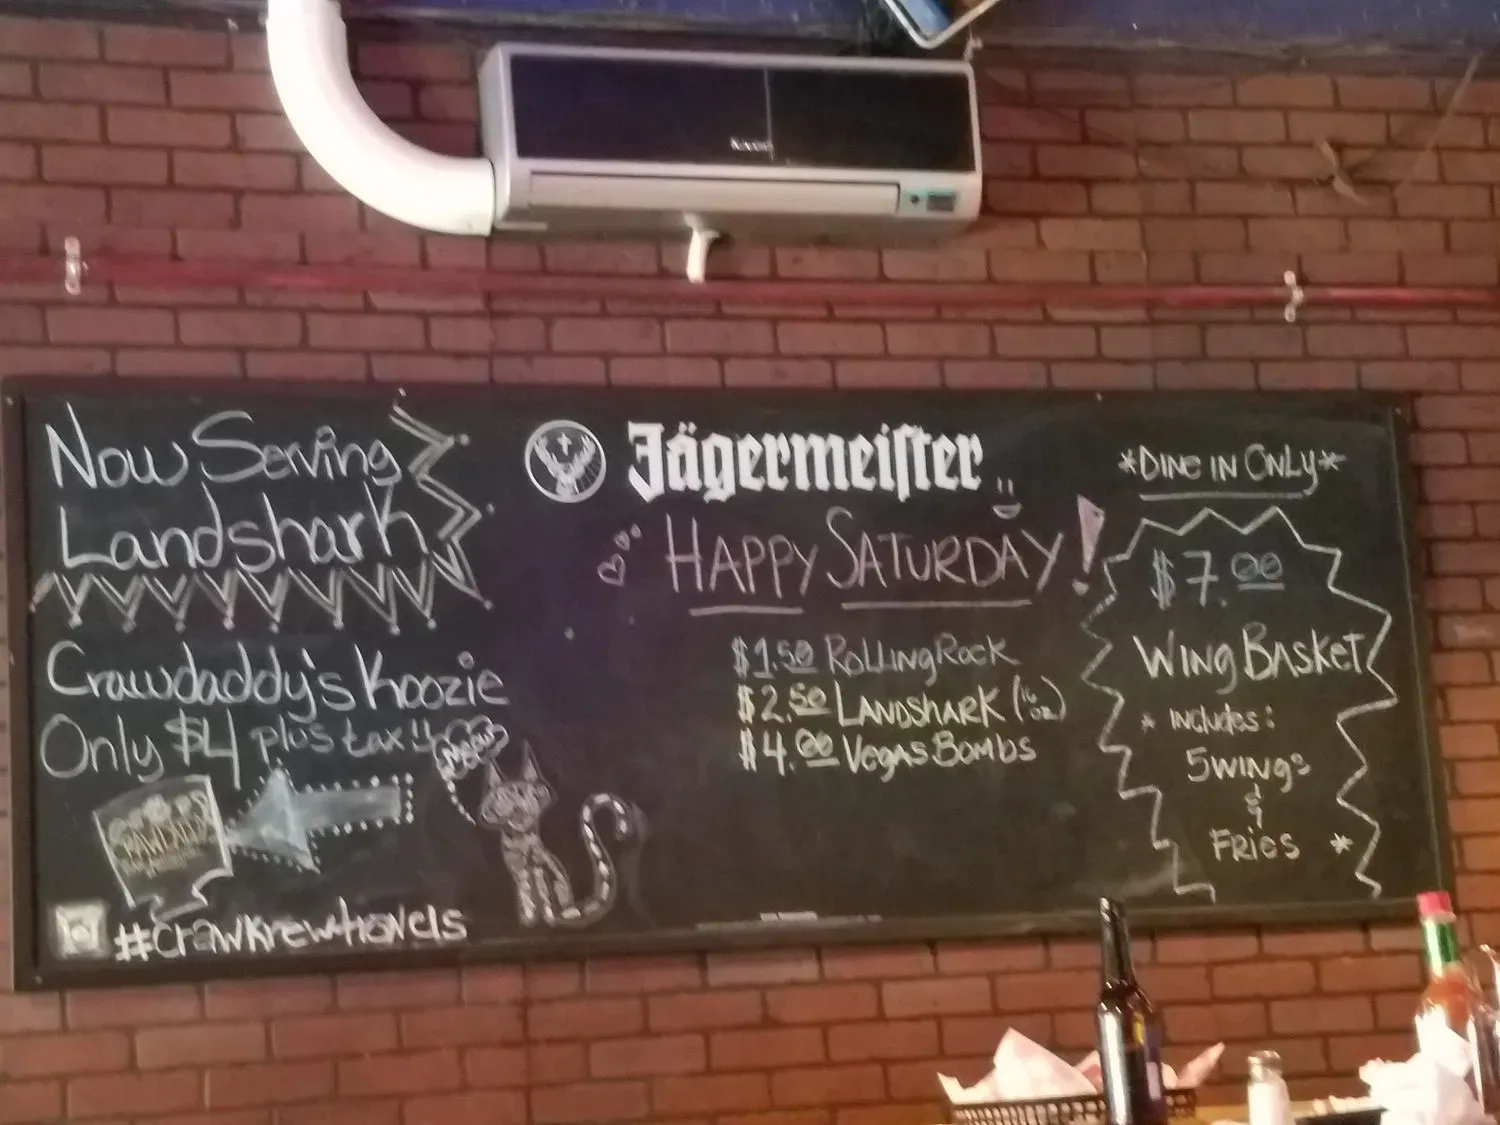 Now Serving
Landshark
Crawdaddy's Koozie
Only $4 plus tax!!
Meow
#crawkrewtravels
Jägermeister
HAPPY SATURDAY!
$1.50 ROLLING ROCK
$2.50 LANDSHARK (16 oz)
$4.00 VEGAS BOMBS
*DINE IN ONLY*
$7.00
WING BASKET
* INCLUDES:
5 WINGS
&
FRIES *